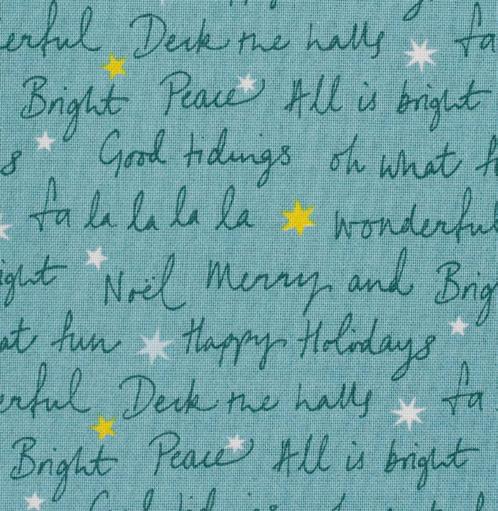 erful Deck the halls fa
Bright Peace All is bright
s Good tidings oh what f
fa la la la la wonderful
ight Noël Merry and Brig
at fun Happy Holidays
erful Deck the halls fa
Bright Peace All is bright